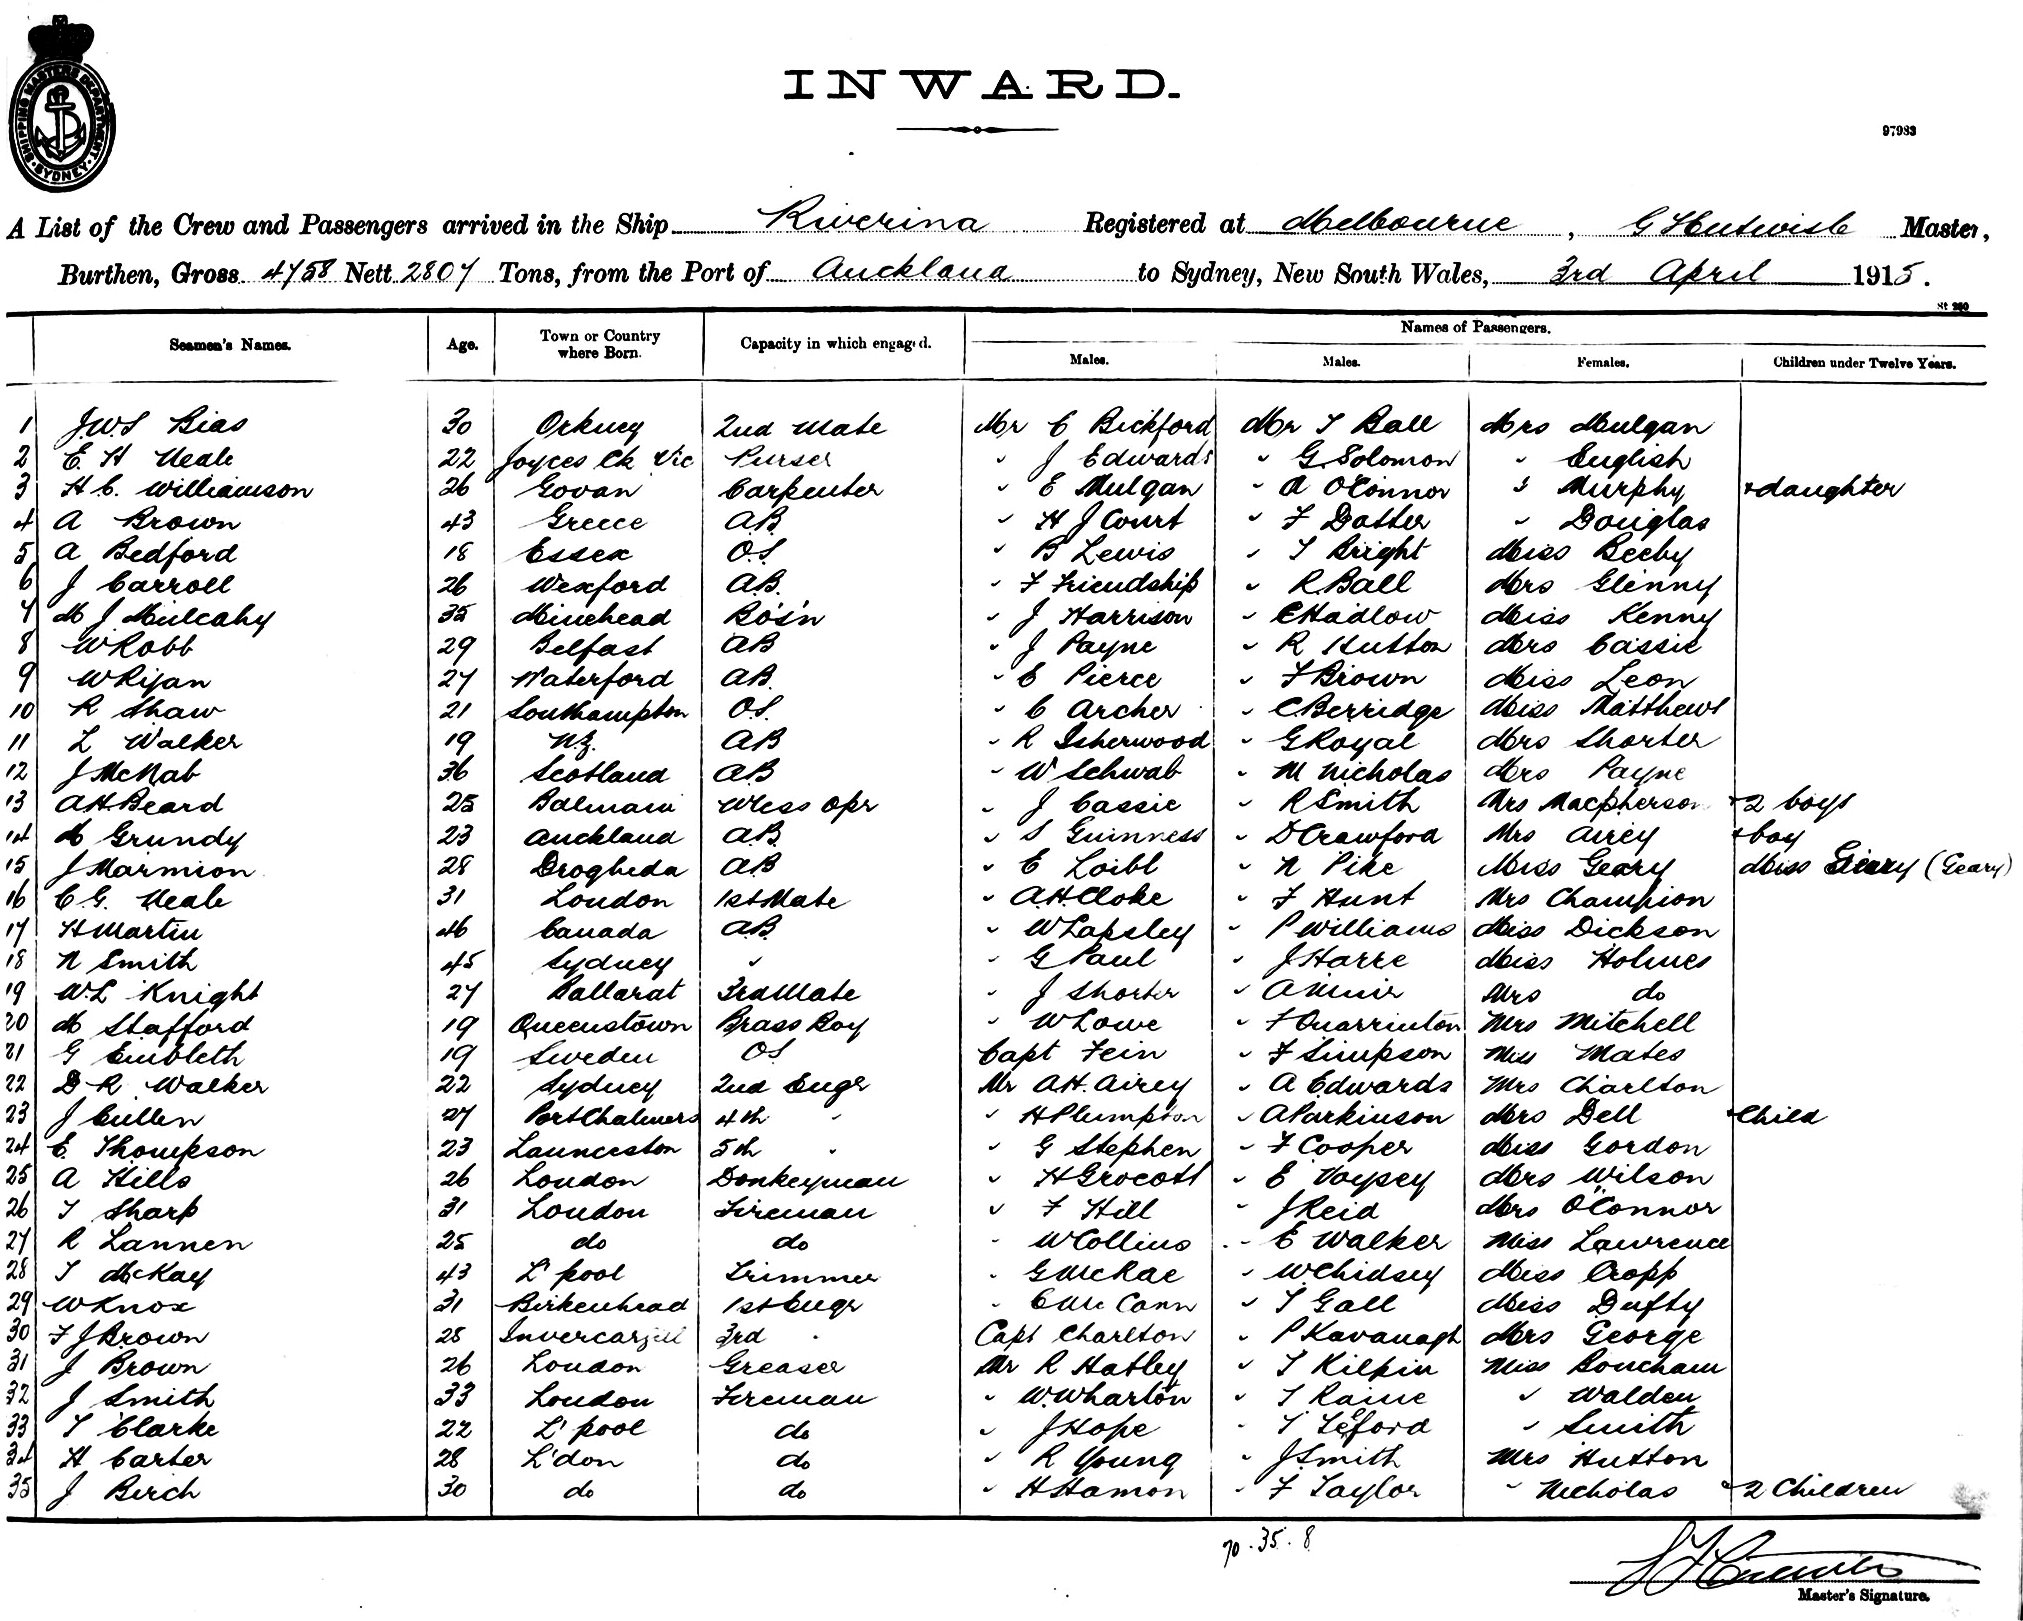 SHIPPING MASTERS DEPARTMENT · SYDNEY ·
INWARD.
97983
A List of the Crew and Passengers arrived in the Ship Riverina Registered at Melbourne, G Hutwish Master,
Burthen, Gross 4758 Nett 2807 Tons, from the Port of Auckland to Sydney, New South Wales, 3rd April 1915.
St 260
Names of Passengers.
Seamen's Names. Age. Town or Country where Born. Capacity in which engaged. Males. Males. Females. Children under Twelve Years.
1 J.W.S Bias 30 Orkney 2nd Mate Mr C Bickford Mr T Ball Mrs Mulgan
2 E. H Neale 22 Joyces Ck Vic Purser " J Edwards " G Solomon " English
3 H C. Williamson 26 Govan Carpenter " E Mulgan " A O'Connor " Murphy + daughter
4 A Brown 43 Greece A.B. " H J Court " F Datter " Douglas
5 A Bedford 18 Essex O.S. " B Lewis " T Bright Miss Beeby
6 J Carroll 26 Wexford A.B. " F Friendship " R Ball Mrs Glenny
7 M J Mulcahy 35 Minehead Bos'n " J Harrison " C Hadlow Miss Kenny
8 W Robb 29 Belfast AB " J Payne " R Hutton Mrs Cassie
9 W Ryan 27 Waterford AB. " E Pierce " F Brown Miss Leon
10 R Shaw 21 Southampton O.S. " C Archer " C Berridge Miss Matthews
11 L Walker 19 N.Z. AB " R Isherwood " G Royal Mrs Shorter
12 J McNab 36 Scotland AB " W Schwab " M Nicholas Mrs Payne
13 A H Beard 25 Balmain W'less Opr " J Cassie " R Smith Mrs Macpherson + 2 boys
14 M Grundy 23 Auckland A.B. " S Guinness " D Crawford Mrs Airey + boy
15 J Marmion 28 Drogheda AB " E Loibl " N Pike Miss Geary Miss Geary (Geary)
16 C G. Neale 31 London 1st Mate " A.H. Cloke " F Hunt Mrs Champion
17 H Martin 46 Canada A.B. " W Lapsley " P Williams Miss Dickson
18 N Smith 45 Sydney " " G Paul " J Harre Miss Holmes
19 W.L Knight 27 Ballarat 3rd Mate " J Shorter " A Muir Mrs do
20 M Stafford 19 Queenstown Brass Boy " W Lowe " F Quarrinton Mrs Mitchell
21 G Embleth 19 Sweden OS Capt Fein " F Simpson Miss Mates
22 D R Walker 22 Sydney 2nd Engr Mr A.H. Airey " A Edwards Mrs Charlton
23 J Cullen 27 Port Chalmers 4th " " H Plumpton " A Parkinson Mrs Dell + Child
24 E Thompson 23 Launceston 5th " " G Stephen " F Cooper Miss Gordon
25 A Hills 26 London Donkeyman " H Grocott " E Voysey Mrs Wilson
26 T Sharp 31 London Fireman " F Hill " J Reid Mrs O'Connor
27 R Lannen 25 do do " W Collins " E Walker Miss Lawrence
28 T McKay 43 L'pool Trimmer " G McRae " W Chidsey Miss Cropp
29 W Knox 31 Birkenhead 1st Engr " C McCann " T Gall Miss Dufty
30 F J Brown 25 Invercargill 3rd " Capt Charlton " P Kavanagh Mrs George
31 J Brown 26 London Greaser Mr R Hatley " T Kilpin Miss Boucham
32 J Smith 33 London Fireman " W. Wharton " T Raine " Walden
33 T Clarke 22 L'pool do " J Hope " T Teford " Smith
34 H Carter 28 L'don do " R Young " J Smith Mrs Hutton
35 J Birch 30 do do " H Hamon " F Taylor " Nicholas + 2 Children
70. 35. 8
Master's Signature.